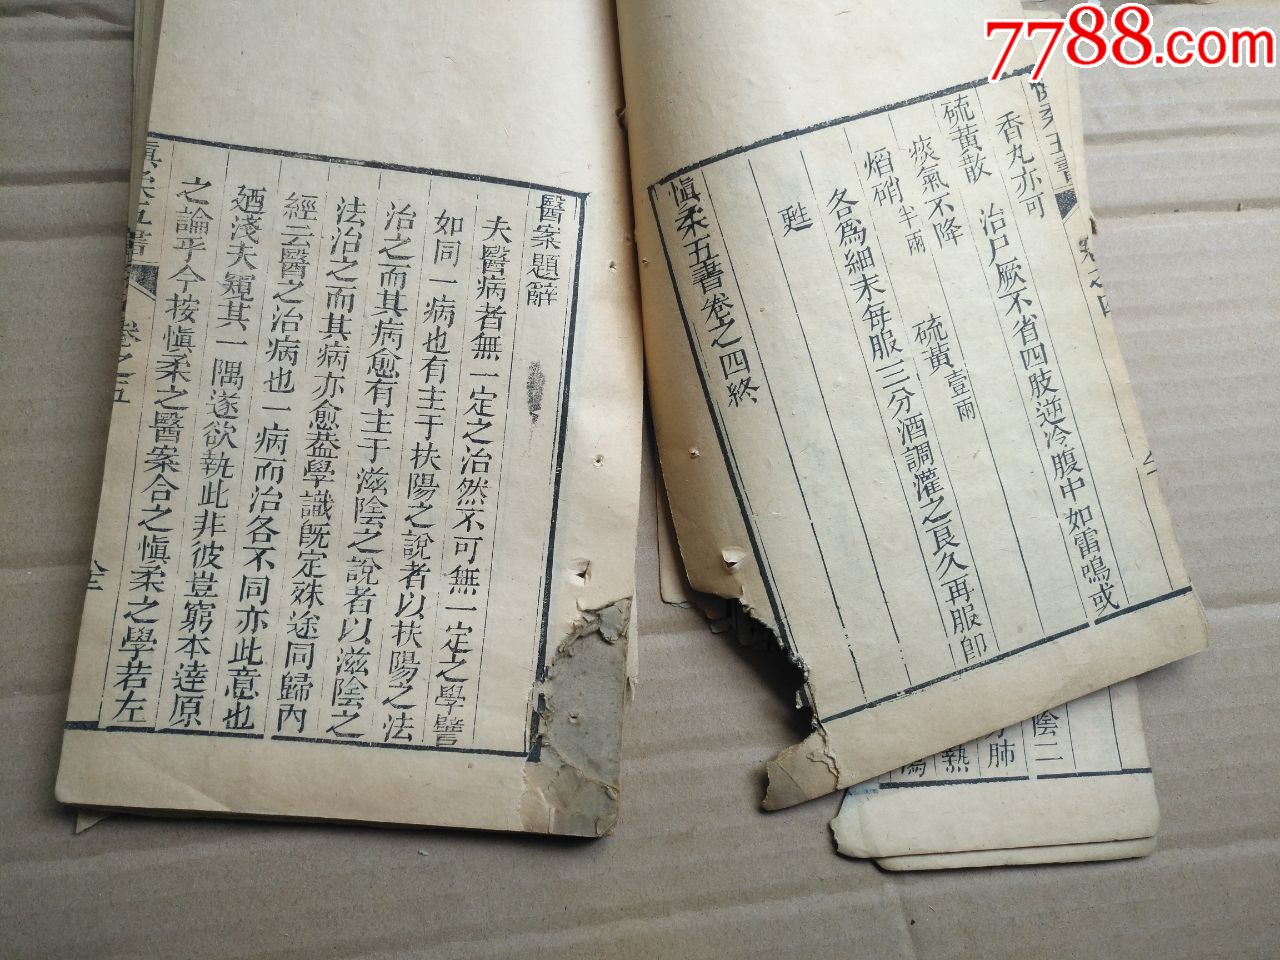 7788.com
香丸亦可
硫黃散 治尸厥不省四肢逆冷腹中如雷鳴或
痰氣不降
焰硝半兩 硫黃壹兩
各爲細末每服三分酒調灌之良久再服卽
甦
慎柔五書卷之四終
醫案題辭
夫醫病者無一定之治然不可無一定之學譬
如同一病也有主于扶陽之說者以扶陽之法
治之而其病愈有主于滋陰之說者以滋陰之
法治之而其病亦愈葢學識旣定殊途同歸內
經云醫之治病也一病而治各不同亦此意也
廼淺夫窺其一隅遂欲執此非彼豈窮本達原
之論乎今按慎柔之醫案合之慎柔之學若左
慎柔五書 卷之五
陰二
肺
熱